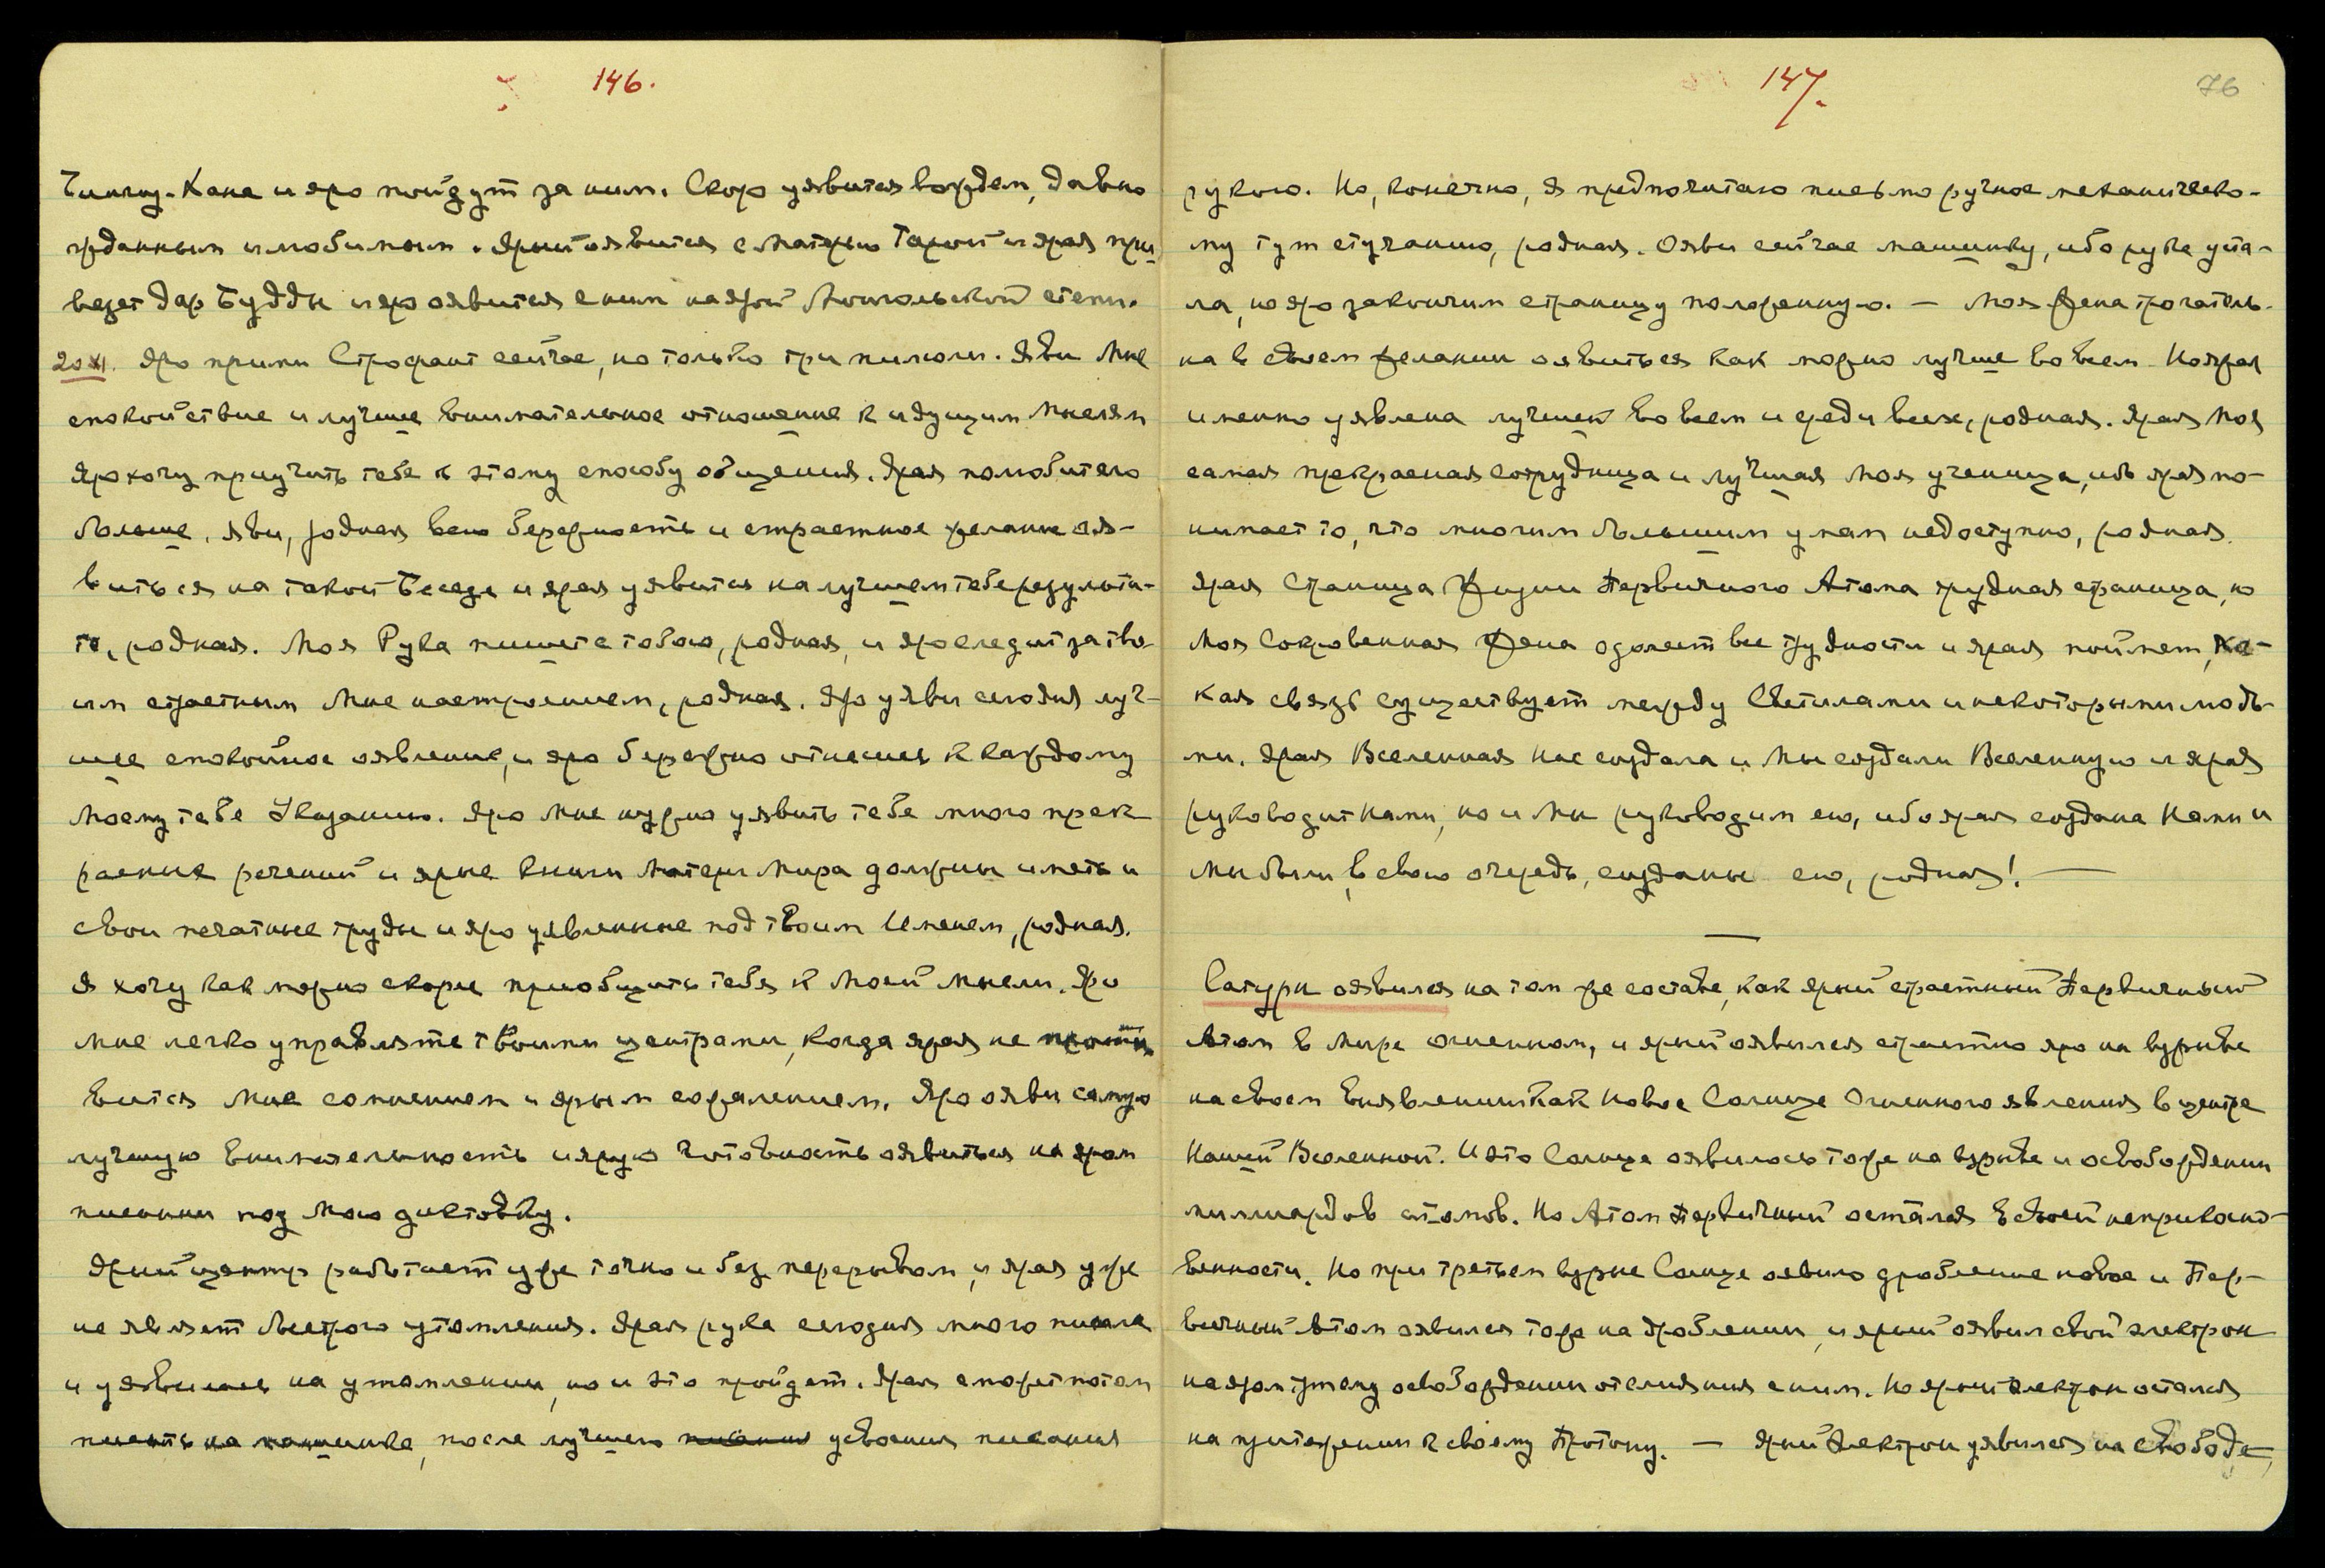 146.
Чингиз-Хана и яро пойдут за ним. Скоро уявится вождем, давно
жданным и любимым. Ярый оявится с Матерью Тарой и ярая при
везет дар Будды и яро оявится с ним на ярой Монгольской степи.
20 XI. Яро прими Строфант сейчас, но только три пилюли. Яви Мне
спокойствие и лучше внимательное отношение к идущим Мыслям
Яро хочу приучить тебя к этому способу общения. Ярая полюбит его
больше. Яви, родная всю бережность и страстное желание оя-
виться на такой Беседе и ярая уявится на лучшем тебе результа-
те, родная. Моя Рука пишет с тобою, родная, и яро следит за тво-
им страстным Мне настроением, родная. Яро уяви сегодня луч-
шее спокойное оявление, и яро бережно отнесись к каждому
Моему тебе Указанию. Яро Мне нужно уявить тебе много прек
расных речений и ярые книги Матери Мира должны иметь и
свои печатные труды и яро уявленные под твоим Именем, родная.
Я хочу как можно скорее приобщить тебя к Моей Мысли. Яро
Мне легко управлять твоими центрами, когда ярая не проти
вится Мне сомнением и ярым сожалением. Яро ояви самую
лучшую внимательность и ярую готовность оявиться на яром
писании под Мою диктовку.
Ярый центр работает уже точно и без перерывом, и ярая уже
не являет быстрого утомления. Ярая рука сегодня много писала
и уявилась на утомлении, но и это пройдет. Ярая сможет потом
писать на машинке, после лучшего писания усвоения писания
147.
76
рукою. Но, конечно, Я предпочитаю письмо ручное механическо-
му тут стучанию, родная. Ояви сейчас машинку, ибо рука уста-
ла, но яро закончим страницу положенную. — Моя Жена трогатель-
на в своем желании оявиться как можно лучше во всем. Но ярая
именно уявлена лучшей во всем и среди всех, родная. Ярая Моя
самая прекрасная сотрудница и лучшая Моя ученица, ибо ярая по-
нимает то, что многим большим умам недоступно, родная.
Ярая Страница Жизни Первичного Атома трудная страница, но
Моя Сокровенная Жена одолеет все трудности и ярая поймет, ка-
кая связь существует между Светилами и некоторыми людь-
ми. Ярая Вселенная Нас создала и Мы создали Вселенную и ярая
руководит Нами, но и Мы руководим ею, ибо ярая создана Нами и
Мы были, в свою очередь, созданы ею, родная! —
—
Сатурн оявился на том же составе, как ярый страстный Первичный
Атом в Мире Огненном, и ярый оявился страстно яро на взрыве
на своем выявлении как Новое Солнце Огненного явления в центре
Нашей Вселенной. И это Солнце оявилось тоже на взрыве и освобождении
миллиардов атомов. Но Атом Первичный остался в своей неприкосно-
венности. Но при третьем взрыве Солнце оявило дробление новое и Пер-
вичный Атом оявился тоже на дроблении, и ярый оявил свой электрон
на яром освобождении от слияния с ним. Но ярый Электрон остался
на притяжении к своему Протону. — Ярый Электрон уявился на свободе,